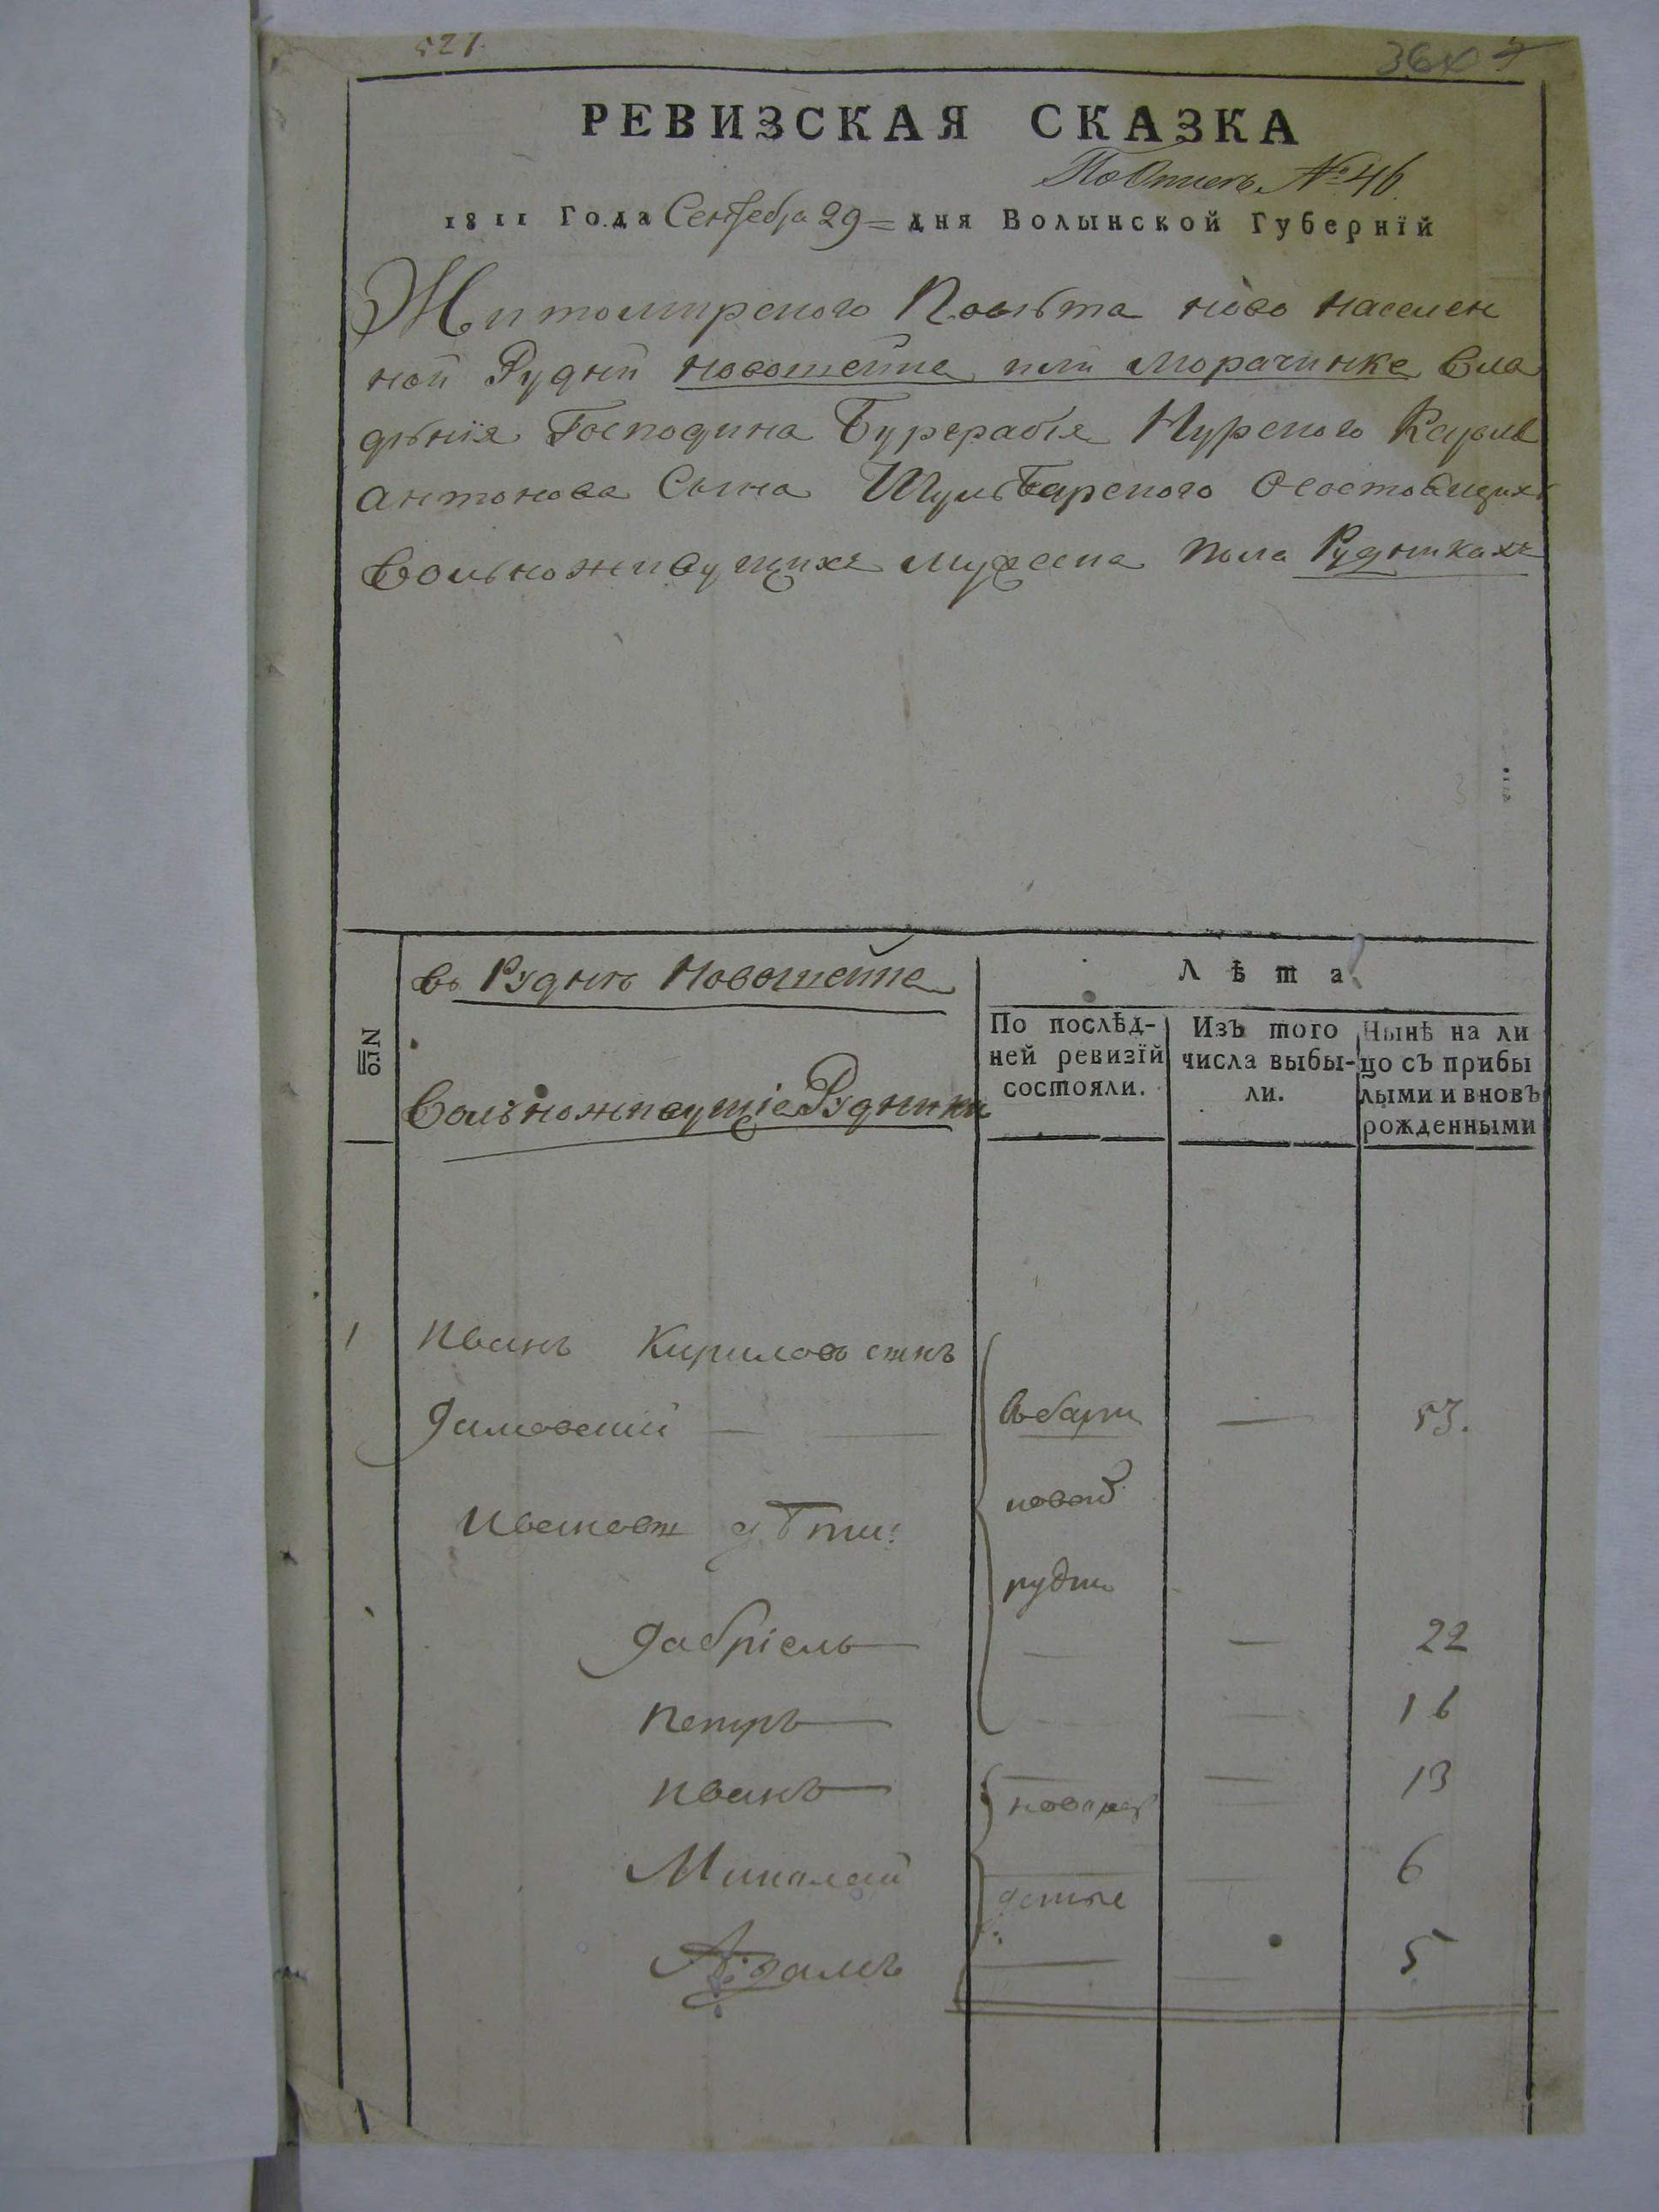 527.
РЕВИЗСКАЯ СКАЗКА
По Описи № 46.
1811 Года Сентебра 29 = дня Волынской Губернїй
Житомирского Повѣта ново населен
ной Рудни Новошейке или Морачинке Вла
дѣнїя Господина Бургграбїя Нурского
Антонова Сына О состоящихъ
Вольноживущихъ мужеска пола Рудникахъ
№
въ Руднѣ Новошейке
Вольноживущїе Рудники
Лѣта
По послѣд-
ней ревизїй
состояли.
Изъ того
числа выбы-
ли.
Нынѣ на ли
цо съ прибы
лыми и вновь
рожденными
1 Иванъ Кириловъ сынъ
53.
новой
Ивановы дѣти:
рудни
Габрїель 22
Петръ 16
Иванъ 13
Миколай 6
Адамъ 5
1